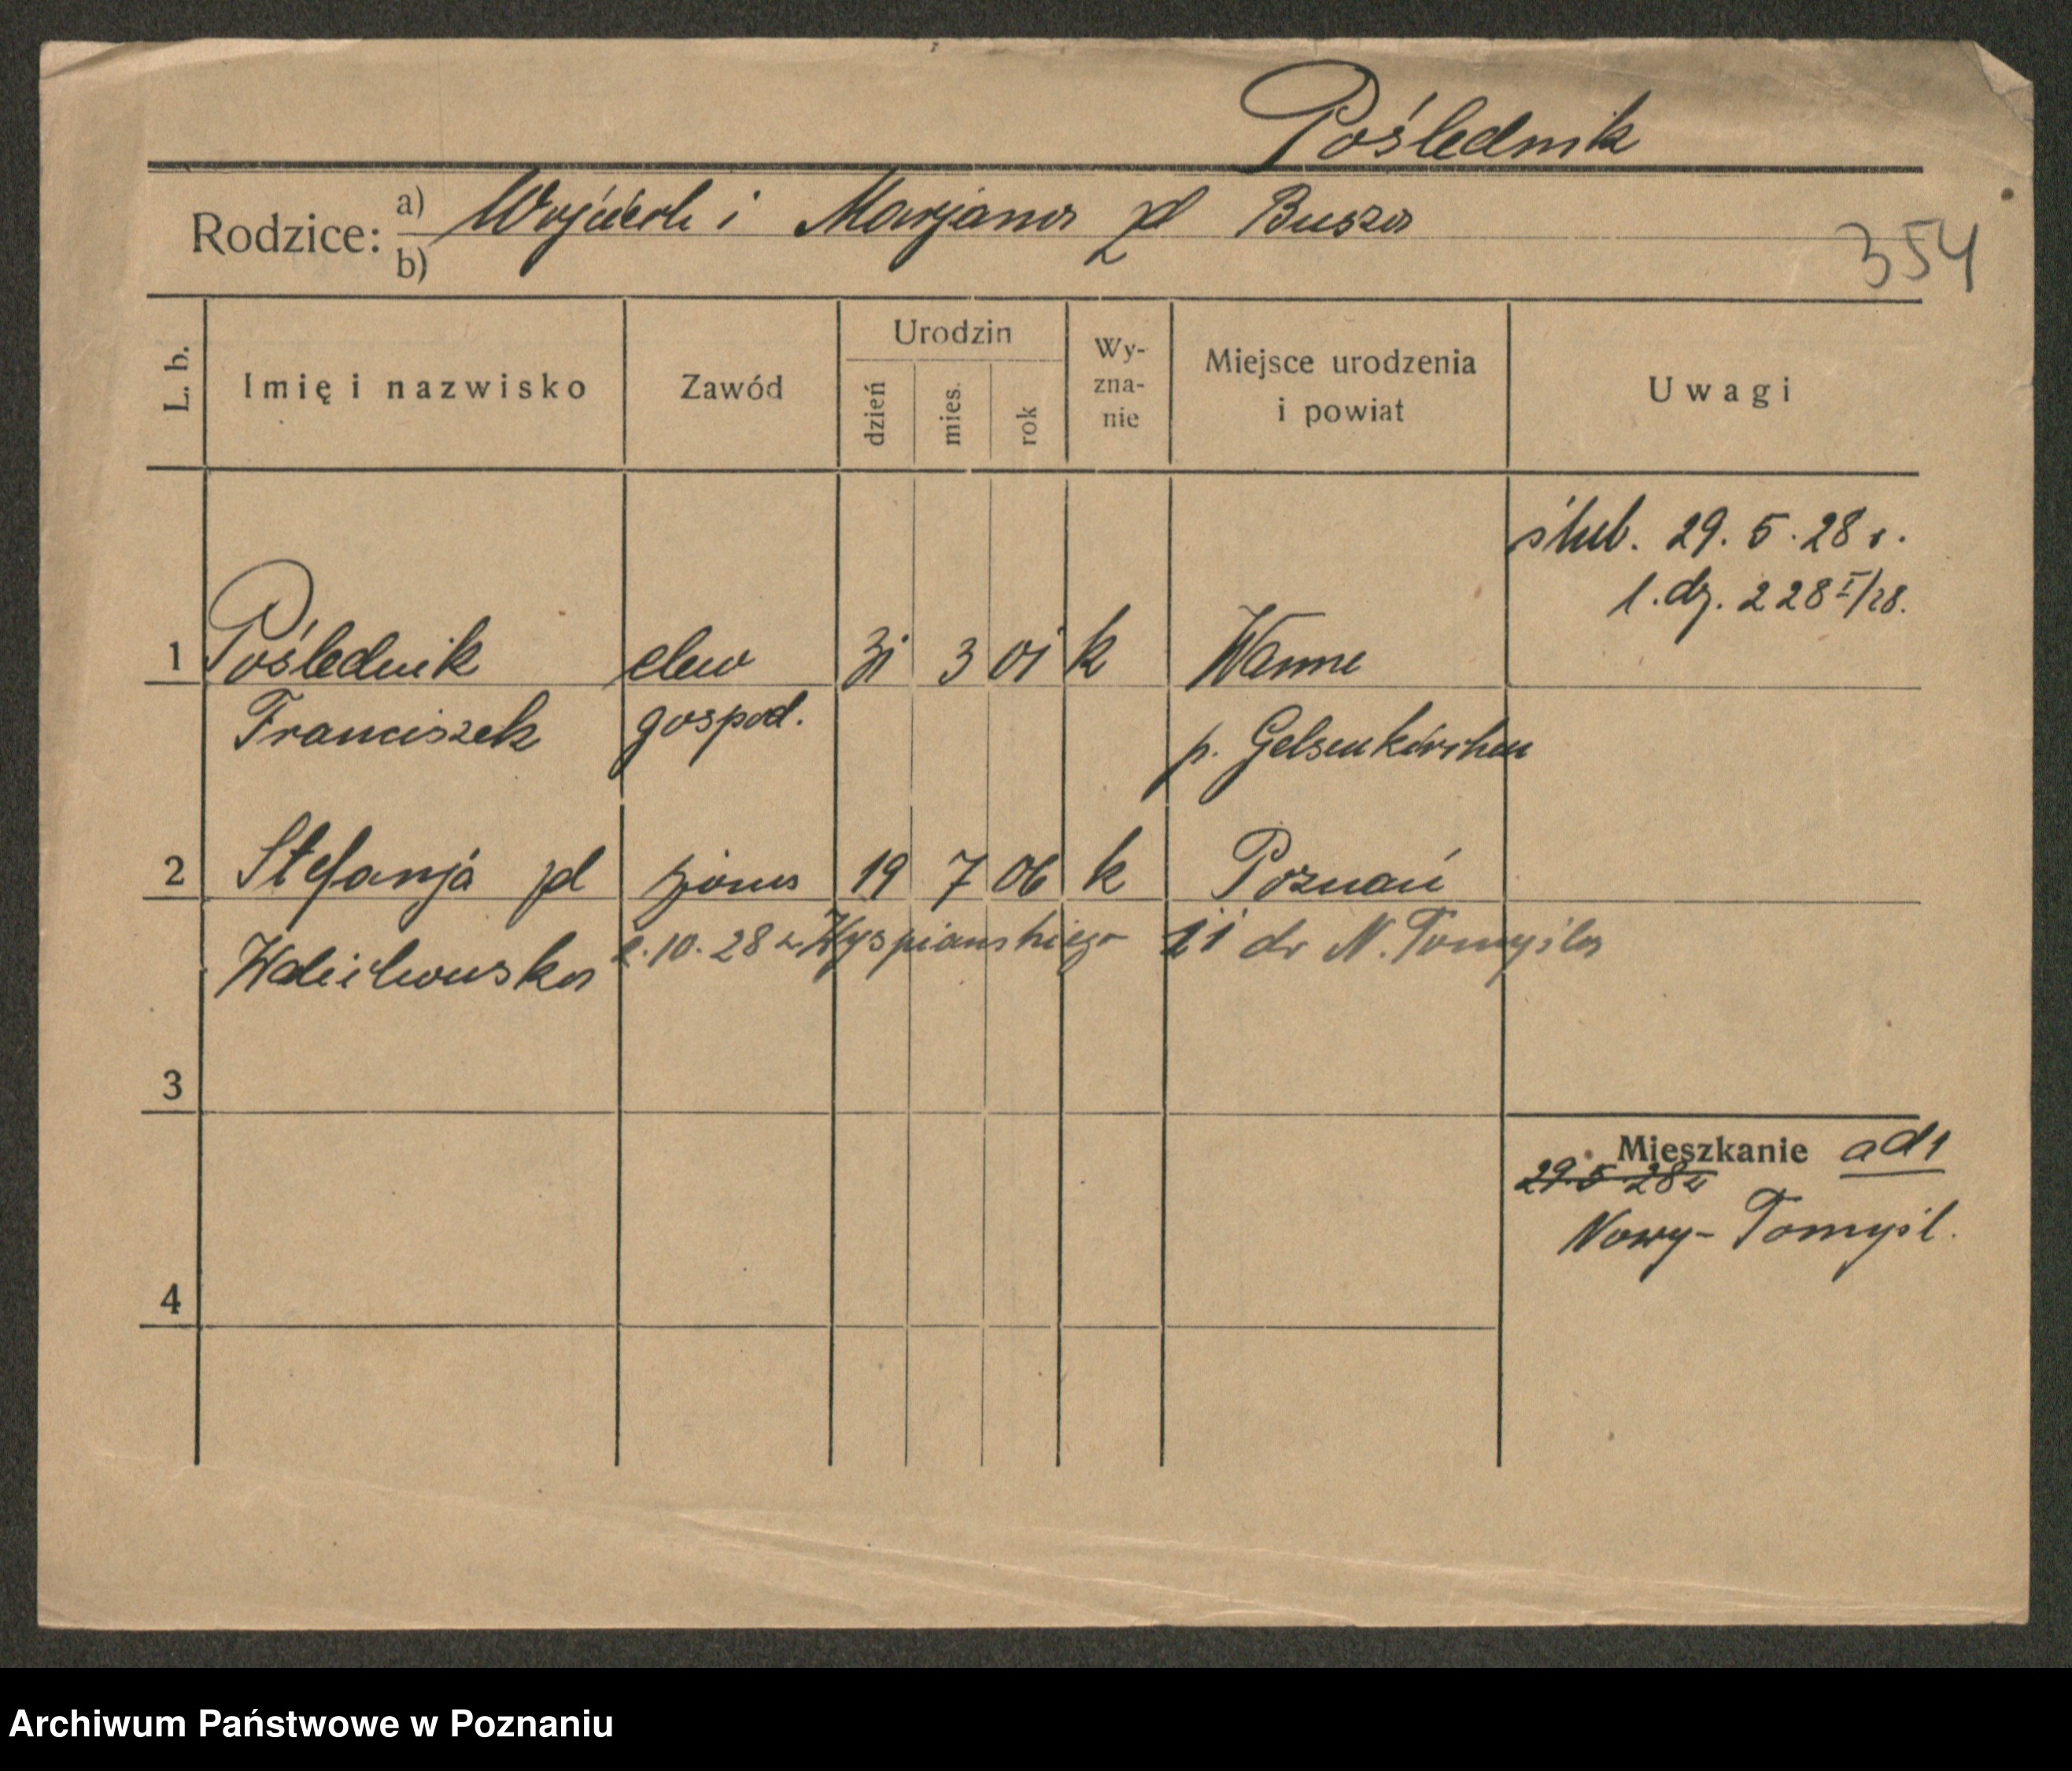 Poślednik
Rodzice: a) Wojciech i Marjanna zd Busza
b)
354
L. b.
Imię i nazwisko
Zawód
Urodzin
dzień
mies.
rok
Wy-
zna-
nie
Miejsce urodzenia
i powiat
Uwagi
ślub. 29. 5. 28 r.
l. dz. 228 I/28.
1 Poślednik elew 31 3 01 k Wanne
Franciszek gospod. p. Gelsenkirchen
2 Stefanja zd żona 19 7 06 k Poznań
10. 28 z Wyspiańskiego 21 do N. Tomyśla
3
Mieszkanie ad 1
29. 5 28
Nowy-Tomyśl.
4
Archiwum Państwowe w Poznaniu